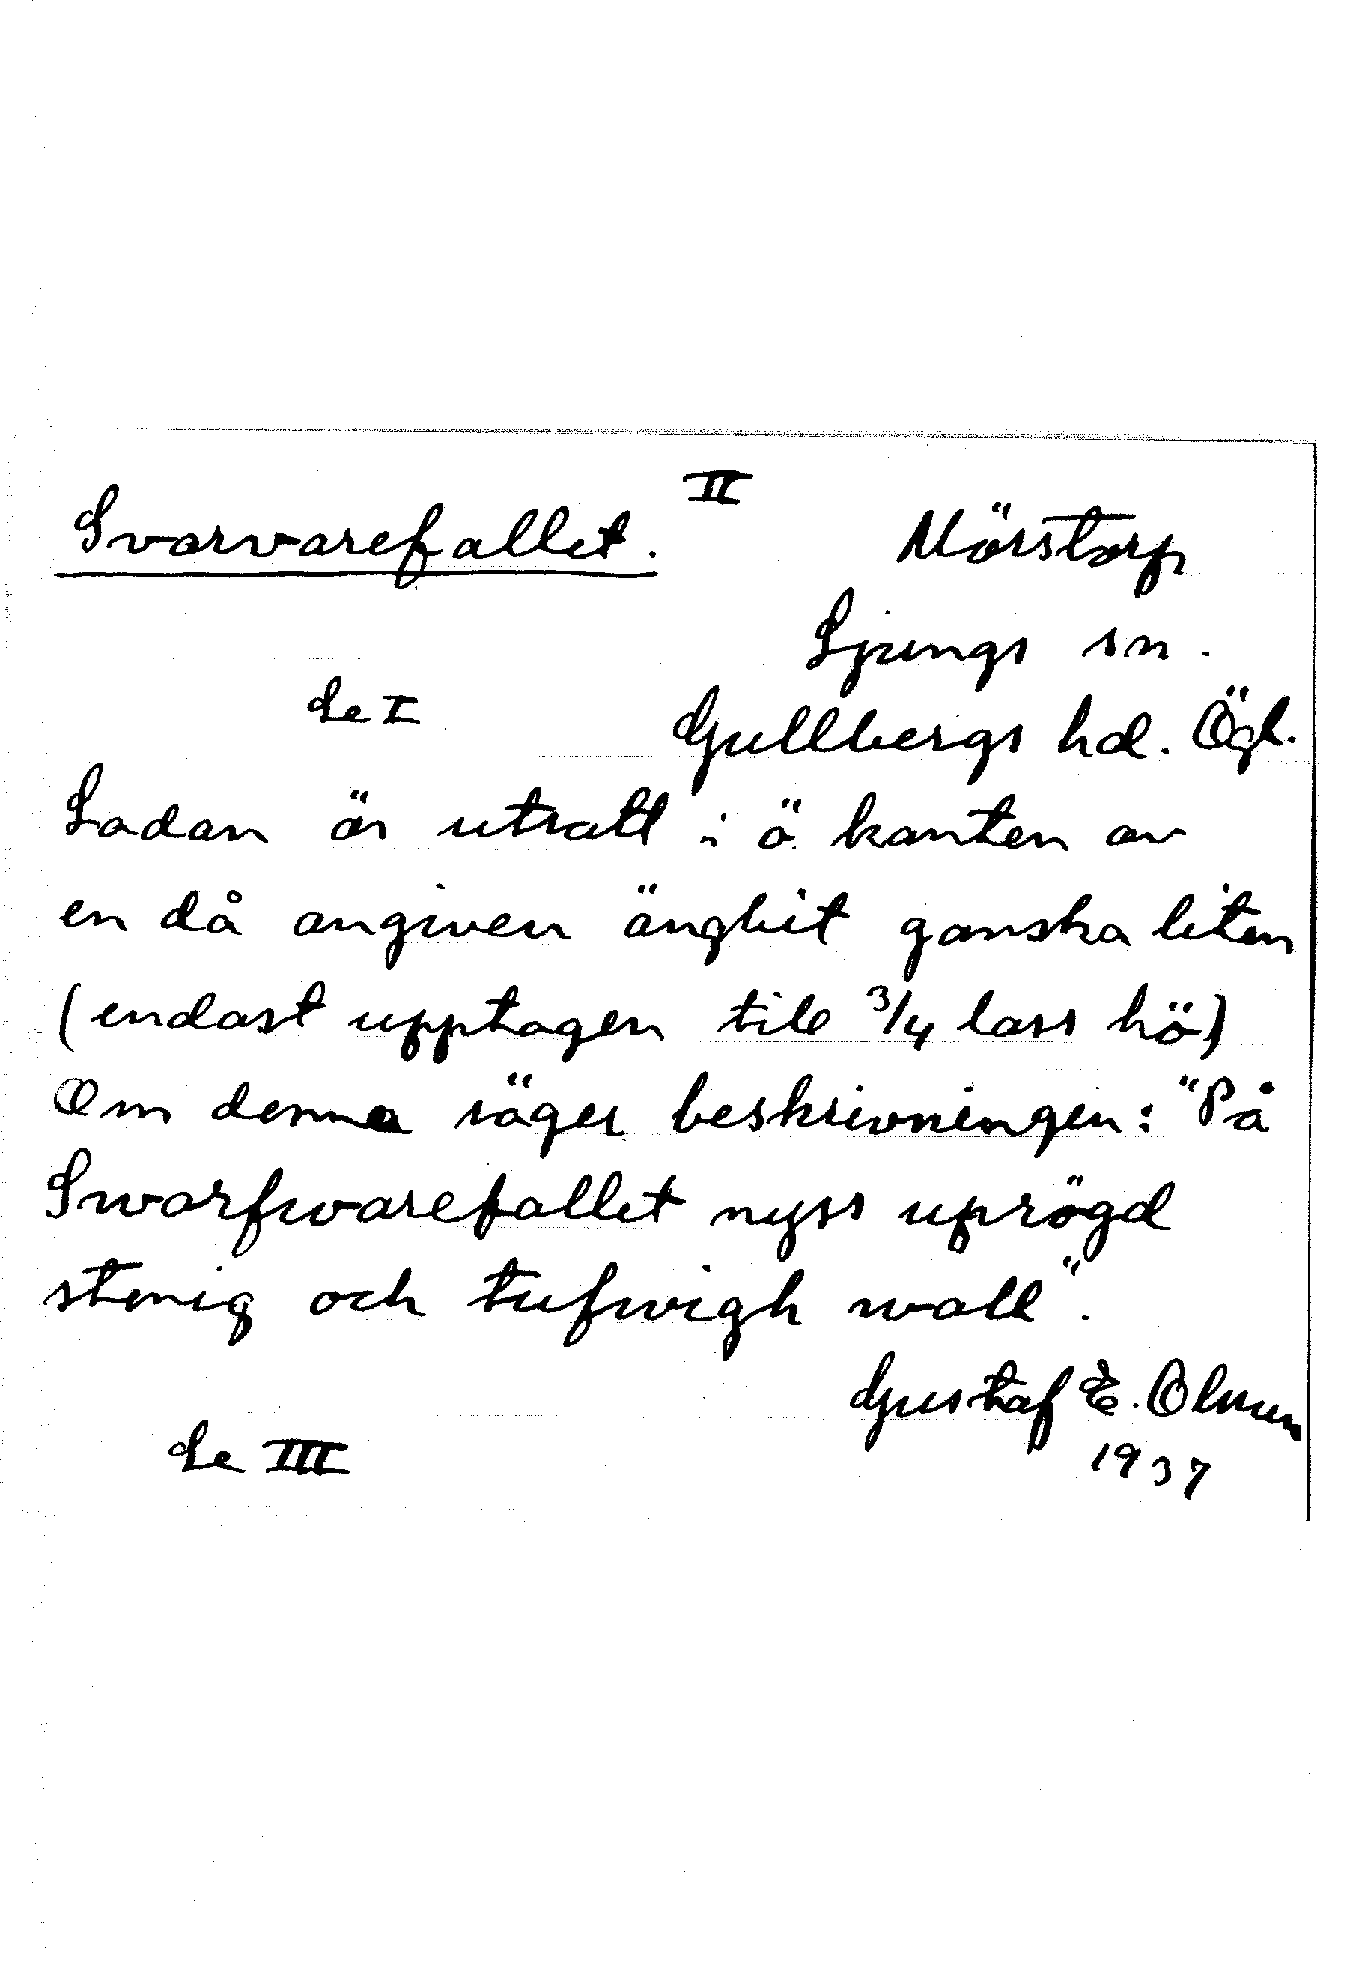 II
Svarvarefallet.
Mörstorp
Ljungs sn.
Se I
Gullbergs hd. Ögl.
Ladan är utsatt i ö kanten av
en då angiven ängbit ganska liten
(endast upptagen till 3/4 lass hö)
Om denna säger beskrivningen: "På
Swarfwarefallet nyss uprögd
stenig och tufwigh wall".
Gustaf E. Olsson
1937
Se III